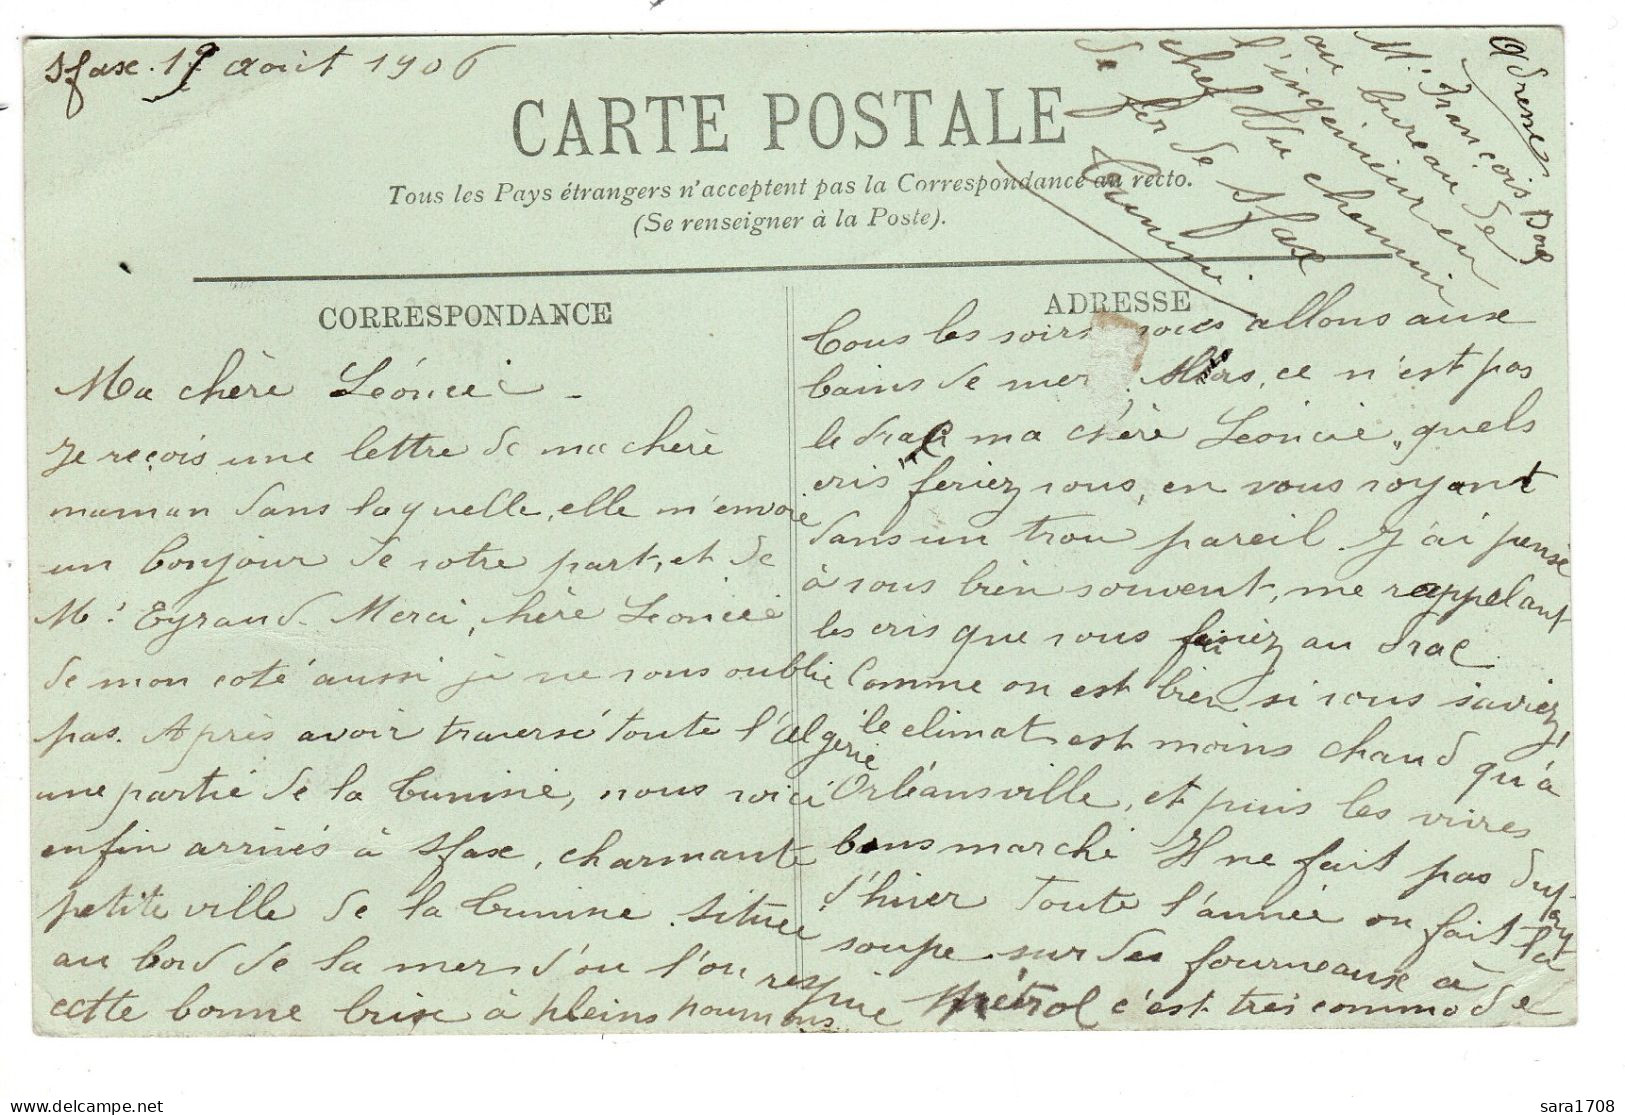 Sfax. 17 août 1906
CARTE POSTALE
Tous les Pays étrangers n'acceptent pas la Correspondance au recto.
(Se renseigner à la Poste).
Adresse
Mr. François
au bureau de
l'ingenieur en
chef du chemin
de fer de Sfax
Tunisie
CORRESPONDANCE
Ma chère Léoncie
Je reçois une lettre de ma chère
maman dans laquelle, elle m'envoie
un bonjour de votre part, et de
Mr. Eyraud. Merci, chère Leoncie
de mon coté aussi je ne vous oublie
pas. Après avoir traversé toute l'Algerie
une partie de la Tunisie, nous voici
enfin arrivés à Sfax, charmante
petite ville de la Tunisie. Située
au bord de la mer d'ou l'on respire
cette bonne brise à pleins poumons
ADRESSE
Tous les soirs nous allons aux
bains de mer. Alors, ce n'est pas
le drac ma chère Leoncie, quels
cris feriez vous, en vous voyant
dans un trou pareil. J'ai pensé
à vous bien souvent, me rappelant
les cris que vous faisiez au drac
Comme on est bien si vous saviez,
le climat est moins chaud qu'à
Orléansville, et puis les vivres
bons marché Il ne fait pas
d'hiver Toute l'année on fait la
soupe sur des fourneaux à
pétrol c'est très commode
sara1708
delcampe.net